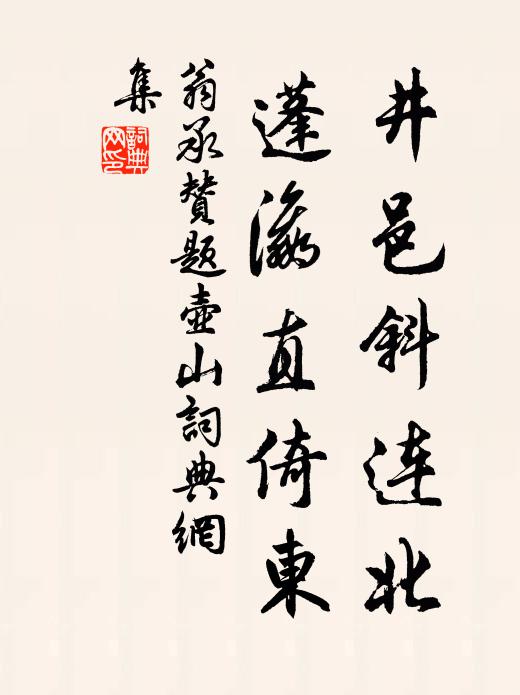 井邑斜連北
蓬瀛直倚東
翁承贊題壺山詞典網
集
詞典網印